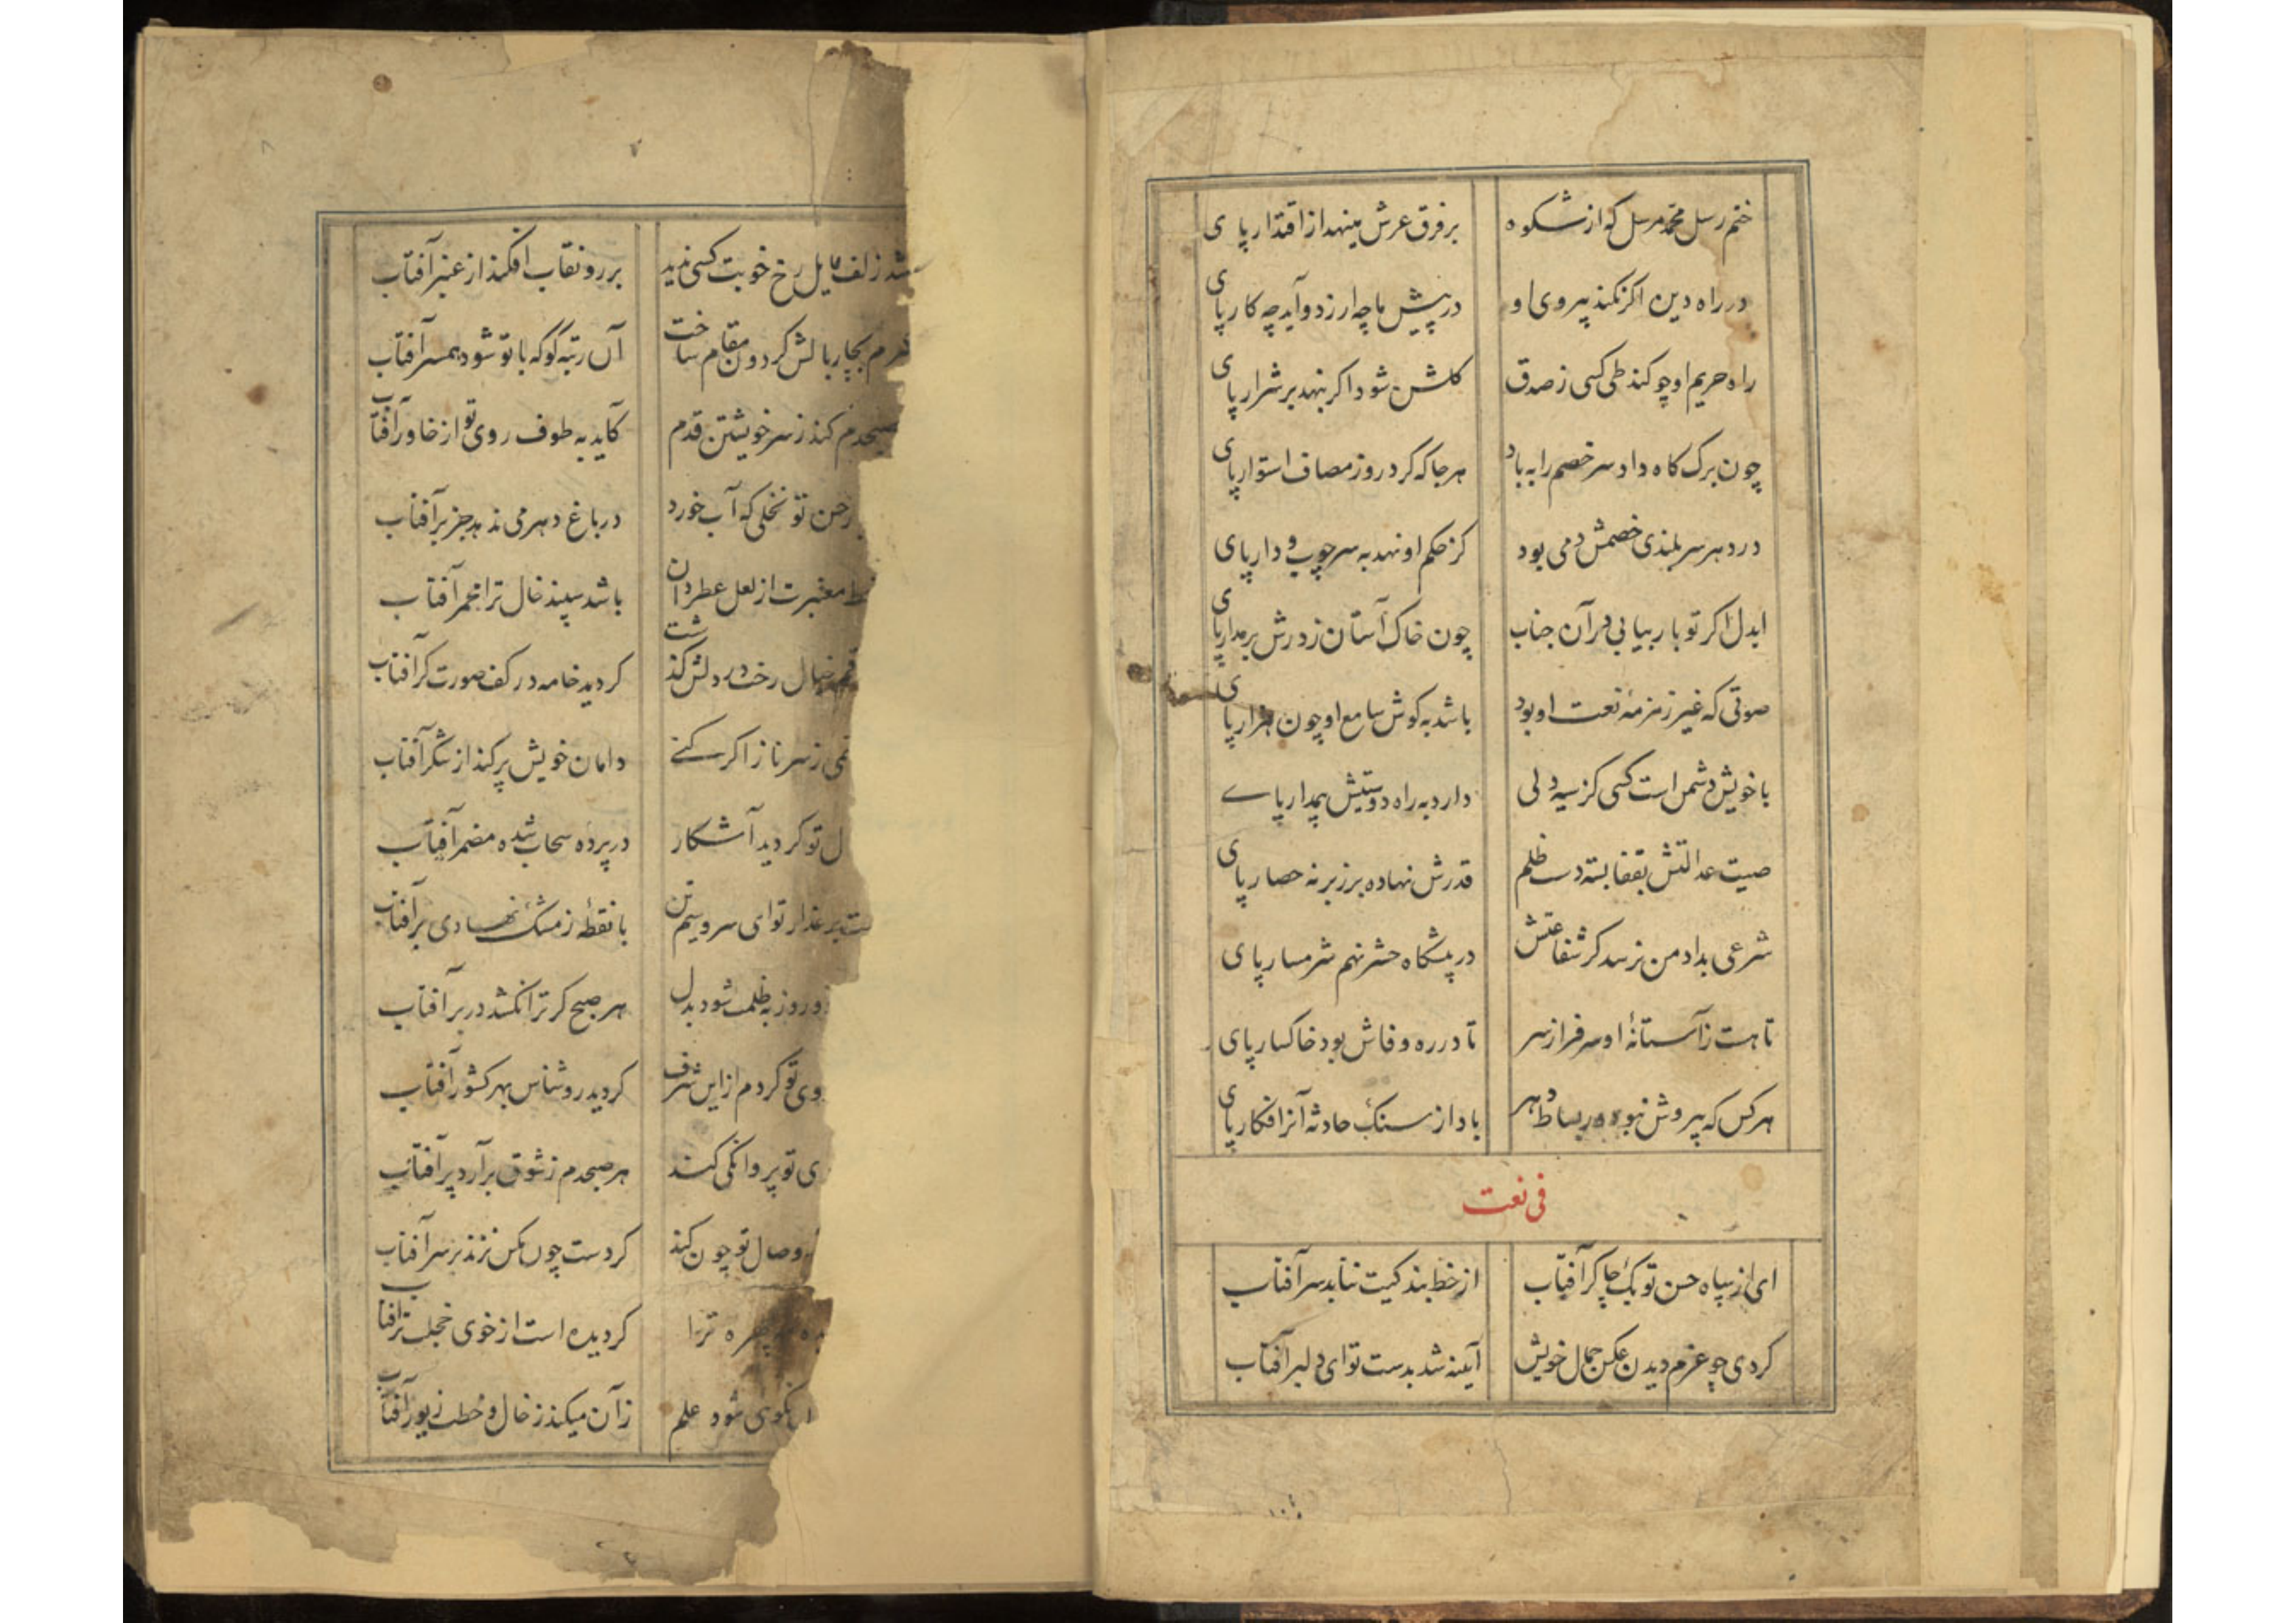 ختم رسل محمد مرسل که از شکوه بر فرق عرش مینهد از اقتدار پای
در راه دین اکر نکند پیروی او در پیش ما چه ارزد و آید چه کار پای
راه حریم او چو کند طی کسی ز صدق کلشن شود اکر بنهد بر شرار پای
چون برک کاه داد سر خصم را به باد هر جا که کرد روز مصاف استوار پای
در دهر سر بلندی خصمش دمی بود کز حکم او نهد به سر چوب و دار پای
ایدل اکر تو بار بیابی در آن جناب چون خاک آستان ز درش بر مدار پای
صوتی که غیر زمزمهٔ نعت او بود باشد به کوش سامع او چون هزار پای
با خویش دشمن است کسی کز سیه دلی دارد به راه دوستیش پیدار پای
صیت عدالتش بقفا بسته دست ظلم قدرش نهاده بر زبر نه حصار پای
شرعی بداد من نرسد کر شفاعتش در پیشکاه حشر نهم شرمسار پای
تا هست ز آستانهٔ او سرفراز سر تا در ره وفاش بود خاکسار پای
هر کس که پیروش نبود در بساط دهر باد از سنک حادثه آنرا فکار پای
فی نعت
ای از سپاه حسن تو یک چاکر آفتاب از خط بندکیت نتابد سر آفتاب
کردی چو عزم دیدن عکس جمال خویش آینه شد بدست تو ای دلبر آفتاب
شد زلف مایل رخ خوبت کسی ندید بر رو نقاب افکند از عنبر آفتاب
بچار بالش کردون مقام ساخت آن رتبه کو که با تو شود همسر آفتاب
صبحدم کند ز سر خویشتن قدم کاید به طوف روی تو از خاور آفتاب
حسن تو نخلی که آب خورد در باغ دهر می ندهد جز بر آفتاب
خط معنبرت از لعل عطردان باشد سپند خال ترا مجمر آفتاب
خیال رخت در دلش کذشت کردید خامه در کف صورت کر آفتاب
ز سر ناز اکر کنی دامان خویش پر کند از شکر آفتاب
تو کردید آشکار در پرده سحاب شده مضمر آفتاب
بر عذار تو ای سرو سیم تن با نقطهٔ ز مشک نهادی بر آفتاب
روز به ظلمت شود بدل هر صبح کر ترا نکشد در بر آفتاب
روی تو کردم از این شرف کردید روشناس بهر کشور آفتاب
تو پروانکی کند هر صبحدم ز شوق بر آرد پر آفتاب
وصال تو چون کند کر دست چون مکس نزند بر سر آفتاب
چهره ترا کردیده است از خوی خجلت تر آفتاب
شود علم زآن میکند ز خال و خطت زیور آفتاب